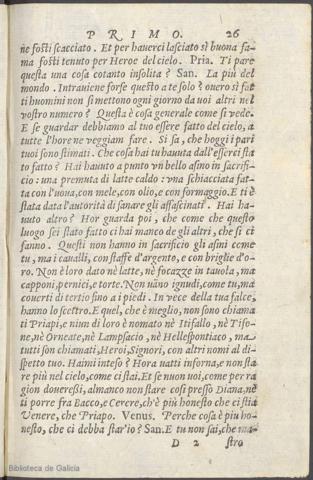 PRIMO. 26
ne fosti scacciato. Et per hauerci lasciato sì buona fa-
ma fosti tenuto per Heroe del cielo. Pria. Ti pare
questa una cosa cotanto insolita? San. La più del
mondo. Intrauiene forse questo a te solo? ouero sì fat
ti huomini non si mettono ogni giorno da uoi altri nel
vostro numero? Questa è cosa generale come si vede.
E se guardar debbiamo al tuo essere fatto del cielo, a
tutte l'hore ne veggiam fare. Si sa, che hoggi i pari
tuoi sono stimati. Che cosa hai tu hauuta dall'esserci sta
to fatto? Hai hauuto a punto vn bello asino in sacrifi-
cio: una premuta di latte caldo: vna schiacciata fat-
ta con l'uoua, con mele, con olio, e con formaggio. E ti è
stata data l'autorità di sanare gli assascinati. Hai ha-
uuto altro? Hor guarda poi, che come che questo
luogo sei stato fatto ci hai manco de gli altri, che si ci
sanno. Questi non hanno in sacrificio gli asini come
tu, ma i caualli, con staffe d'argento, e con briglie d'o-
ro. Non è loro dato nè latte, nè focazze in tauola, ma
capponi, pernici, e torte. Non uàno ignudi, come tu, ma
couerti di tertio sino a i piedi. In vece della tua falce,
hanno lo scettro. E quel, che è meglio, non sono chiama
ti Priapi, e niun di loro è nomato nè Itifallo, nè Tifo-
ne, nè Orneate, nè Lampsacio, nè Hellespontiaco, ma
tutti son chiamati, Heroi, Signori, con altri nomi al di-
spetto tuo. Haimi inteso? Hora uatti inforna, e non sta
re più nel cielo, come ci stai. Et se nuon uoi, come per ra
gion doueressi, almanco non stare così presso Diana, nè
ti porre fra Bacco, e Cerere, ch'è più honesto che ci stia
Venere, che Priapo. Venus. Perche cosa è più ho-
nesto, che ci debba star'io? San. E tu non sai, che ma-
D 2 stro
Biblioteca de Galicia